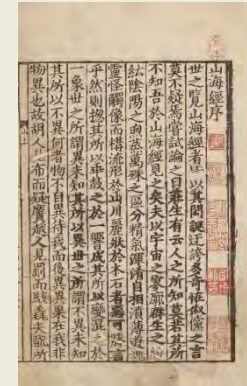 山海經序
世之覽山海經者皆以其閎誕迂誇多奇怪俶儻之言
莫不疑焉嘗試論之曰莊生有云人之所知莫若其所
不知吾於山海經見之矣夫以宇宙之寥廓群生之紛
紜陰陽之煦蒸萬殊之區分精氣渾淆自相濆薄遊魂
靈怪觸像而構流形於山川麗狀於木石者惡可勝言
乎然則總其所以乖鼓之於一響成其所以變混之於
一象世之所謂異未知其所以異世之所謂不異未知
其所以不異何者物不自異待我而後異異果在我非
物異也故胡人見布而疑黂越人見罽而駭毳夫翫所